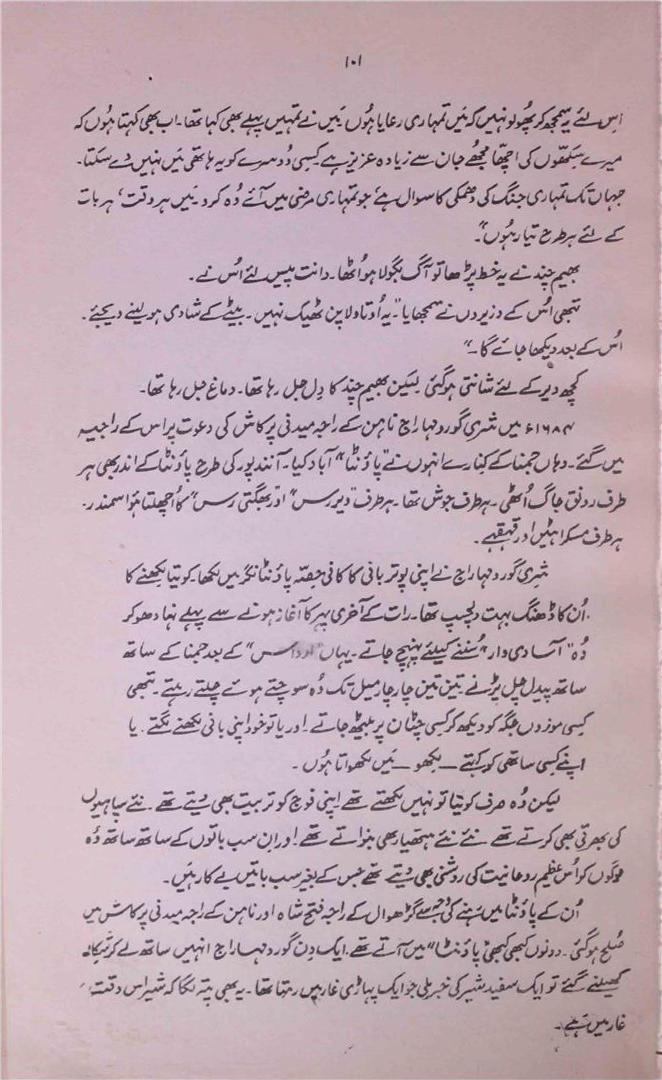 ۱۰۱
اِس لئے یہ سمجھ کر پھُولو نہیں کہ مَیں تمہاری رعایا ہُوں مَیں نے تمہیں پہلے بھی کہا تھا۔ اب بھی کہتا ہُوں کہ
میرے سِکھّوں کی اِچھّا مجھُے جان سے زیادہ عزیز ہے کِسی دُوسرے کو یہ ہاتھی مَیں نہیں دے سکتا۔
جہاں تک تمہاری جنگ کی دھمکی کا سوال ہے جو تمہاری مرضی میں آئے وُہ کرو۔ مَیں ہر وقت‘ ہر بات
کے لئے ہر طرح تیار ہُوں“۔
بھیم چند نے یہ خط پڑھا تو آگ بگولا ہو اُٹھا۔ دانت پیس لئے اُس نے۔
تبھی اُس کے وزیروں نے سمجھایا ”یہ اُتاولا پن ٹھیک نہیں۔ بیٹے کے شادی ہو لینے دیجئے۔
اُس کے بعد دیکھا جائے گا۔“
کچھ دیر کے لئے شانتی ہو گئی لیکن بھیم چند کا دِل جل رہا تھا۔ دماغ جل رہا تھا۔
۱۶۸۴ء میں شری گورو مہاراج ناہن کے راجہ میدنی پرکاش کی دعوت پر اس کے راجیہ
میں گئے۔ وہاں جمنا کے کِنارے انہوں نے ”پاؤنٹا“ آباد کیا۔ آنند پور کی طرح پاؤنٹا کے اندر بھی ہر
طرف رونق جاگ اُٹھی۔ ہر طرف جوش تھا۔ ہر طرف ”ویر رس“ اور ”بھگتی رس“ کا اُچھلتا ہوا سمندر۔
ہر طرف مسکراہٹیں اور قہقہے۔
شری گورو مہاراج نے اپنی پوتر بانی کا کافی حِصّہ پاؤنٹا نگر میں لکھا۔ کویتا لِکھنے کا
اُن کا ڈھنگ بہت دلچسپ تھا۔ رات کے آخری پہر کا آغاز ہونے سے پہلے نہا دھو کر
وُہ ”آسا دی وار“ سُننے کیلئے پہنچ جاتے۔ یہاں کے بعد جمنا کے ساتھ
ساتھ پیدل چل پڑنے تین تین چار چار میل تک وُہ سوچتے ہوئے چلتے رہتے۔ تبھی
کِسی موزوں جگہ کو دیکھ کر کسی چٹان پر بیٹھ جاتے۔ اور یا تو خود اپنی بانی لکھنے لگتے۔ یا
اپنے کِسی ساتھی کو کہتے — لکھو — مَیں لکھواتا ہُوں۔
لیکن وُہ صرف کویتا تو نہیں لکھتے تھے اپنی فوج کو تربیت بھی دیتے تھے۔ نئے سپاہیوں
کی بھرتی بھی کرتے تھے نئے نئے ہتھیار بھی بنواتے تھے۔ اور اِن سب باتوں کے ساتھ ساتھ وُہ
لوگوں کو اُس عظیم روحانیت کی روشنی بھی دیتے تھے جس کے بغیر سب باتیں بے کار ہَیں۔
اُن کے پاؤنٹا میں رہنے کی وجہ سے گڑھوال کے راجہ فتح شاہ اور ناہن کے راجہ میدنی پرکاش میں
صُلح ہو گئی۔ دونوں کبھی کبھی ”پاؤنٹا“ میں آتے تھے۔ ایک دِن گورو مہاراج انہیں ساتھ لے کر شکار
کھیلنے گئے تو ایک سفید شیر کی خبر مِلی جو ایک پہاڑی غار میں رہتا تھا۔ یہ بھی پتہ لگا کہ شیر اِس وقت
غار میں ہے۔